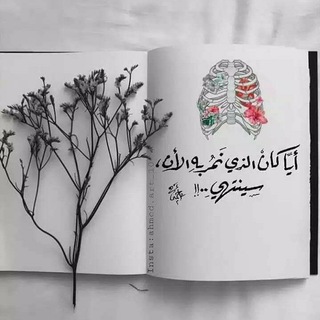 أيًّا كانَ الذي نَمرُ بهِ الأن،
سينتهي ..!!